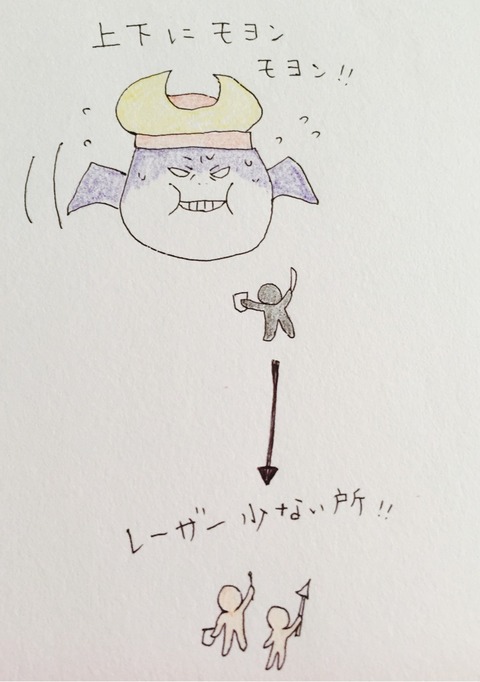 上下にモヨン
モヨン!!
レーザー少ない所!!